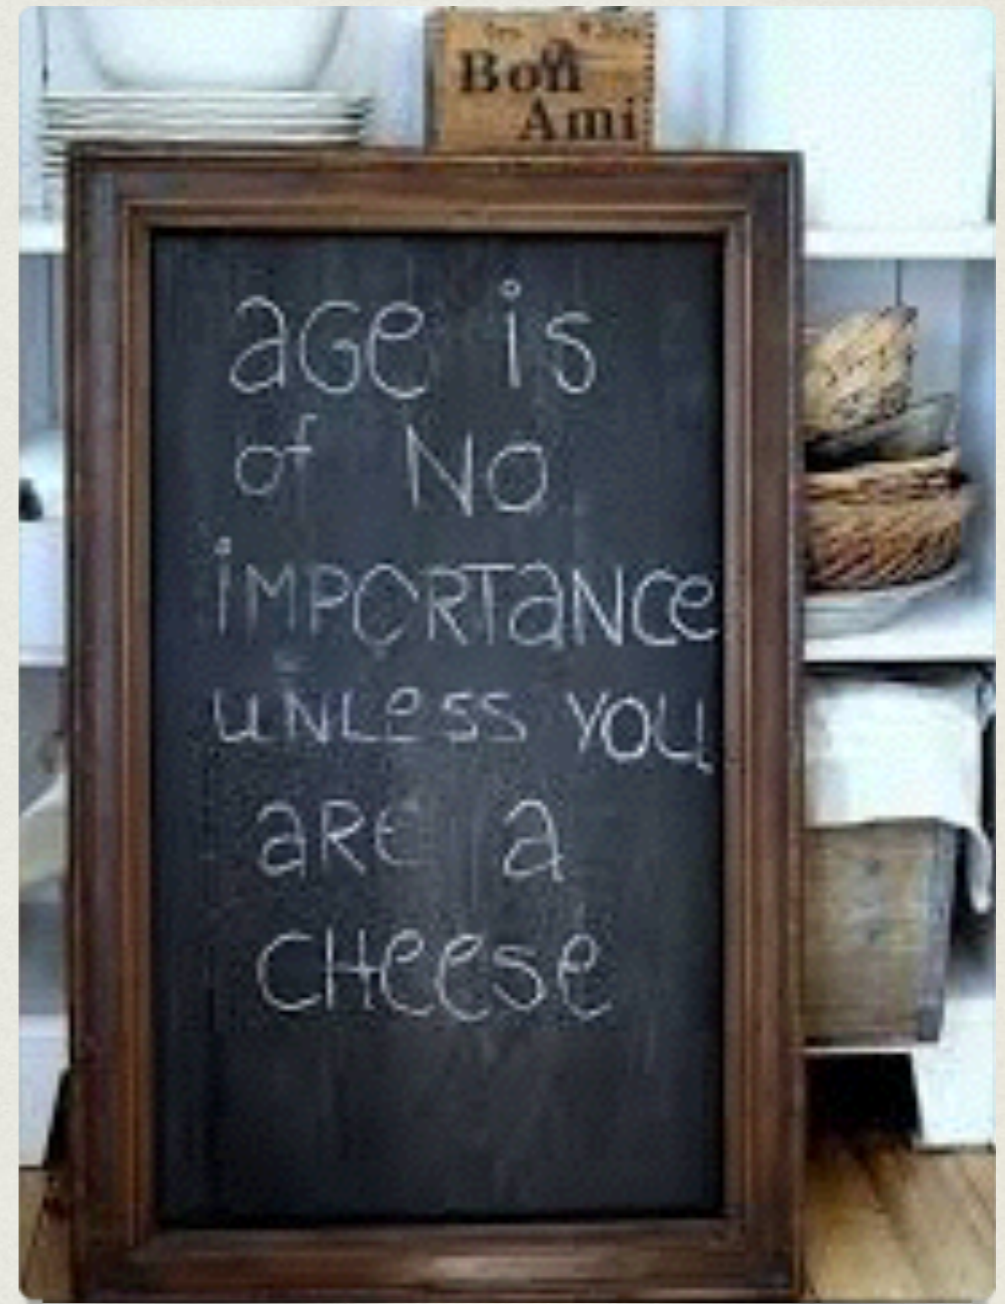 Bon
Ami
aGe is
of NO
iMPORTaNCe
uNLess you
aRe a
CHeese